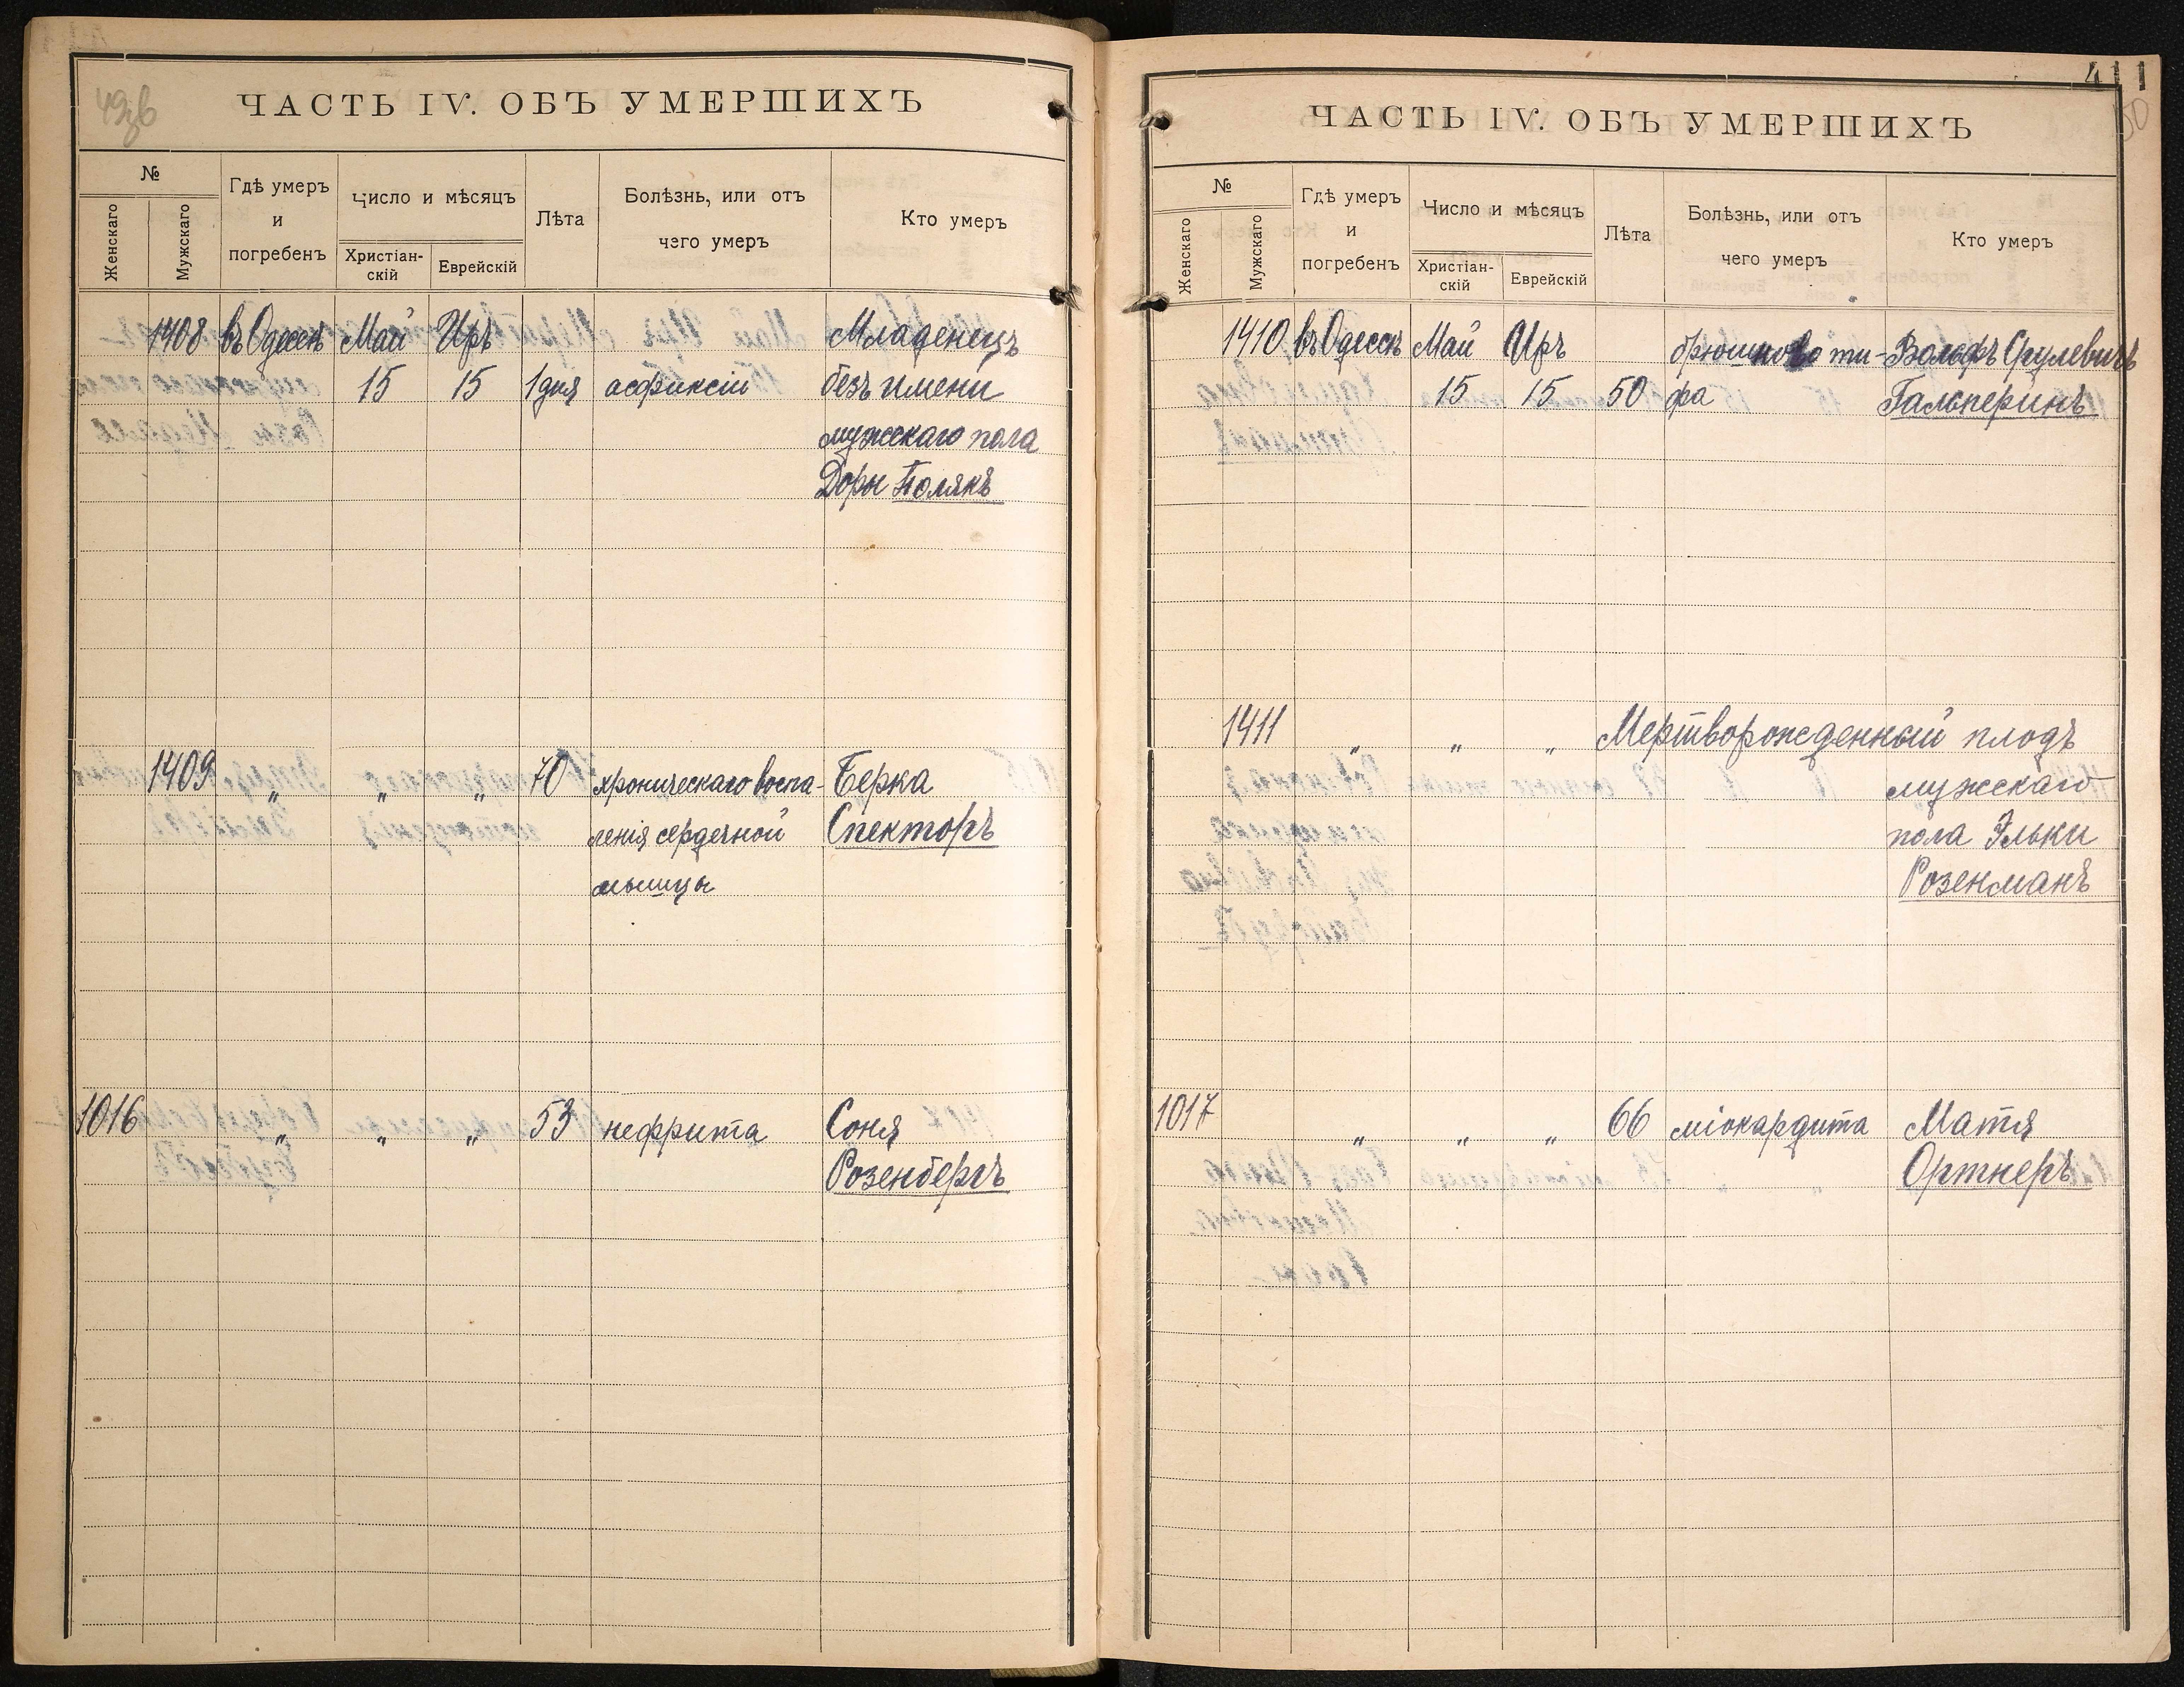 49об
ЧАСТЬ IV. ОБЪ УМЕРШИХЪ
№
Женскаго
Мужскаго
Гдѣ умеръ
и
погребенъ
Число и мѣсяцъ
Христіан-
скій
Еврейскій
Лѣта
Болѣзнь, или отъ
чего умеръ
Кто умеръ
1408 въ Одессѣ Май Иръ Младенецъ
15 15 1 дня асфиксіи безъ имени
мужскаго пола
Доры Полякъ
1409 „ „ „ 70 хроническаго воспа- Берка
ленія сердечной Спекторъ
мышцы
1016 „ „ „ 53 нефрита Соня
Розенбергъ
411
50
ЧАСТЬ IV. ОБЪ УМЕРШИХЪ
№
Женскаго
Мужскаго
Гдѣ умеръ
и
погребенъ
Число и мѣсяцъ
Христіан-
скій
Еврейскій
Лѣта
Болѣзнь, или отъ
чего умеръ
Кто умеръ
1410 въ Одессѣ Май Иръ брюшново ти- Вольфъ
15 15 50 фа Гальперинъ
1411 „ „ „ Мертворожденный плодъ
мужскаго
пола Эльки
Розенманъ
1017 „ „ „ 66 міокардита Матя
Ортнеръ